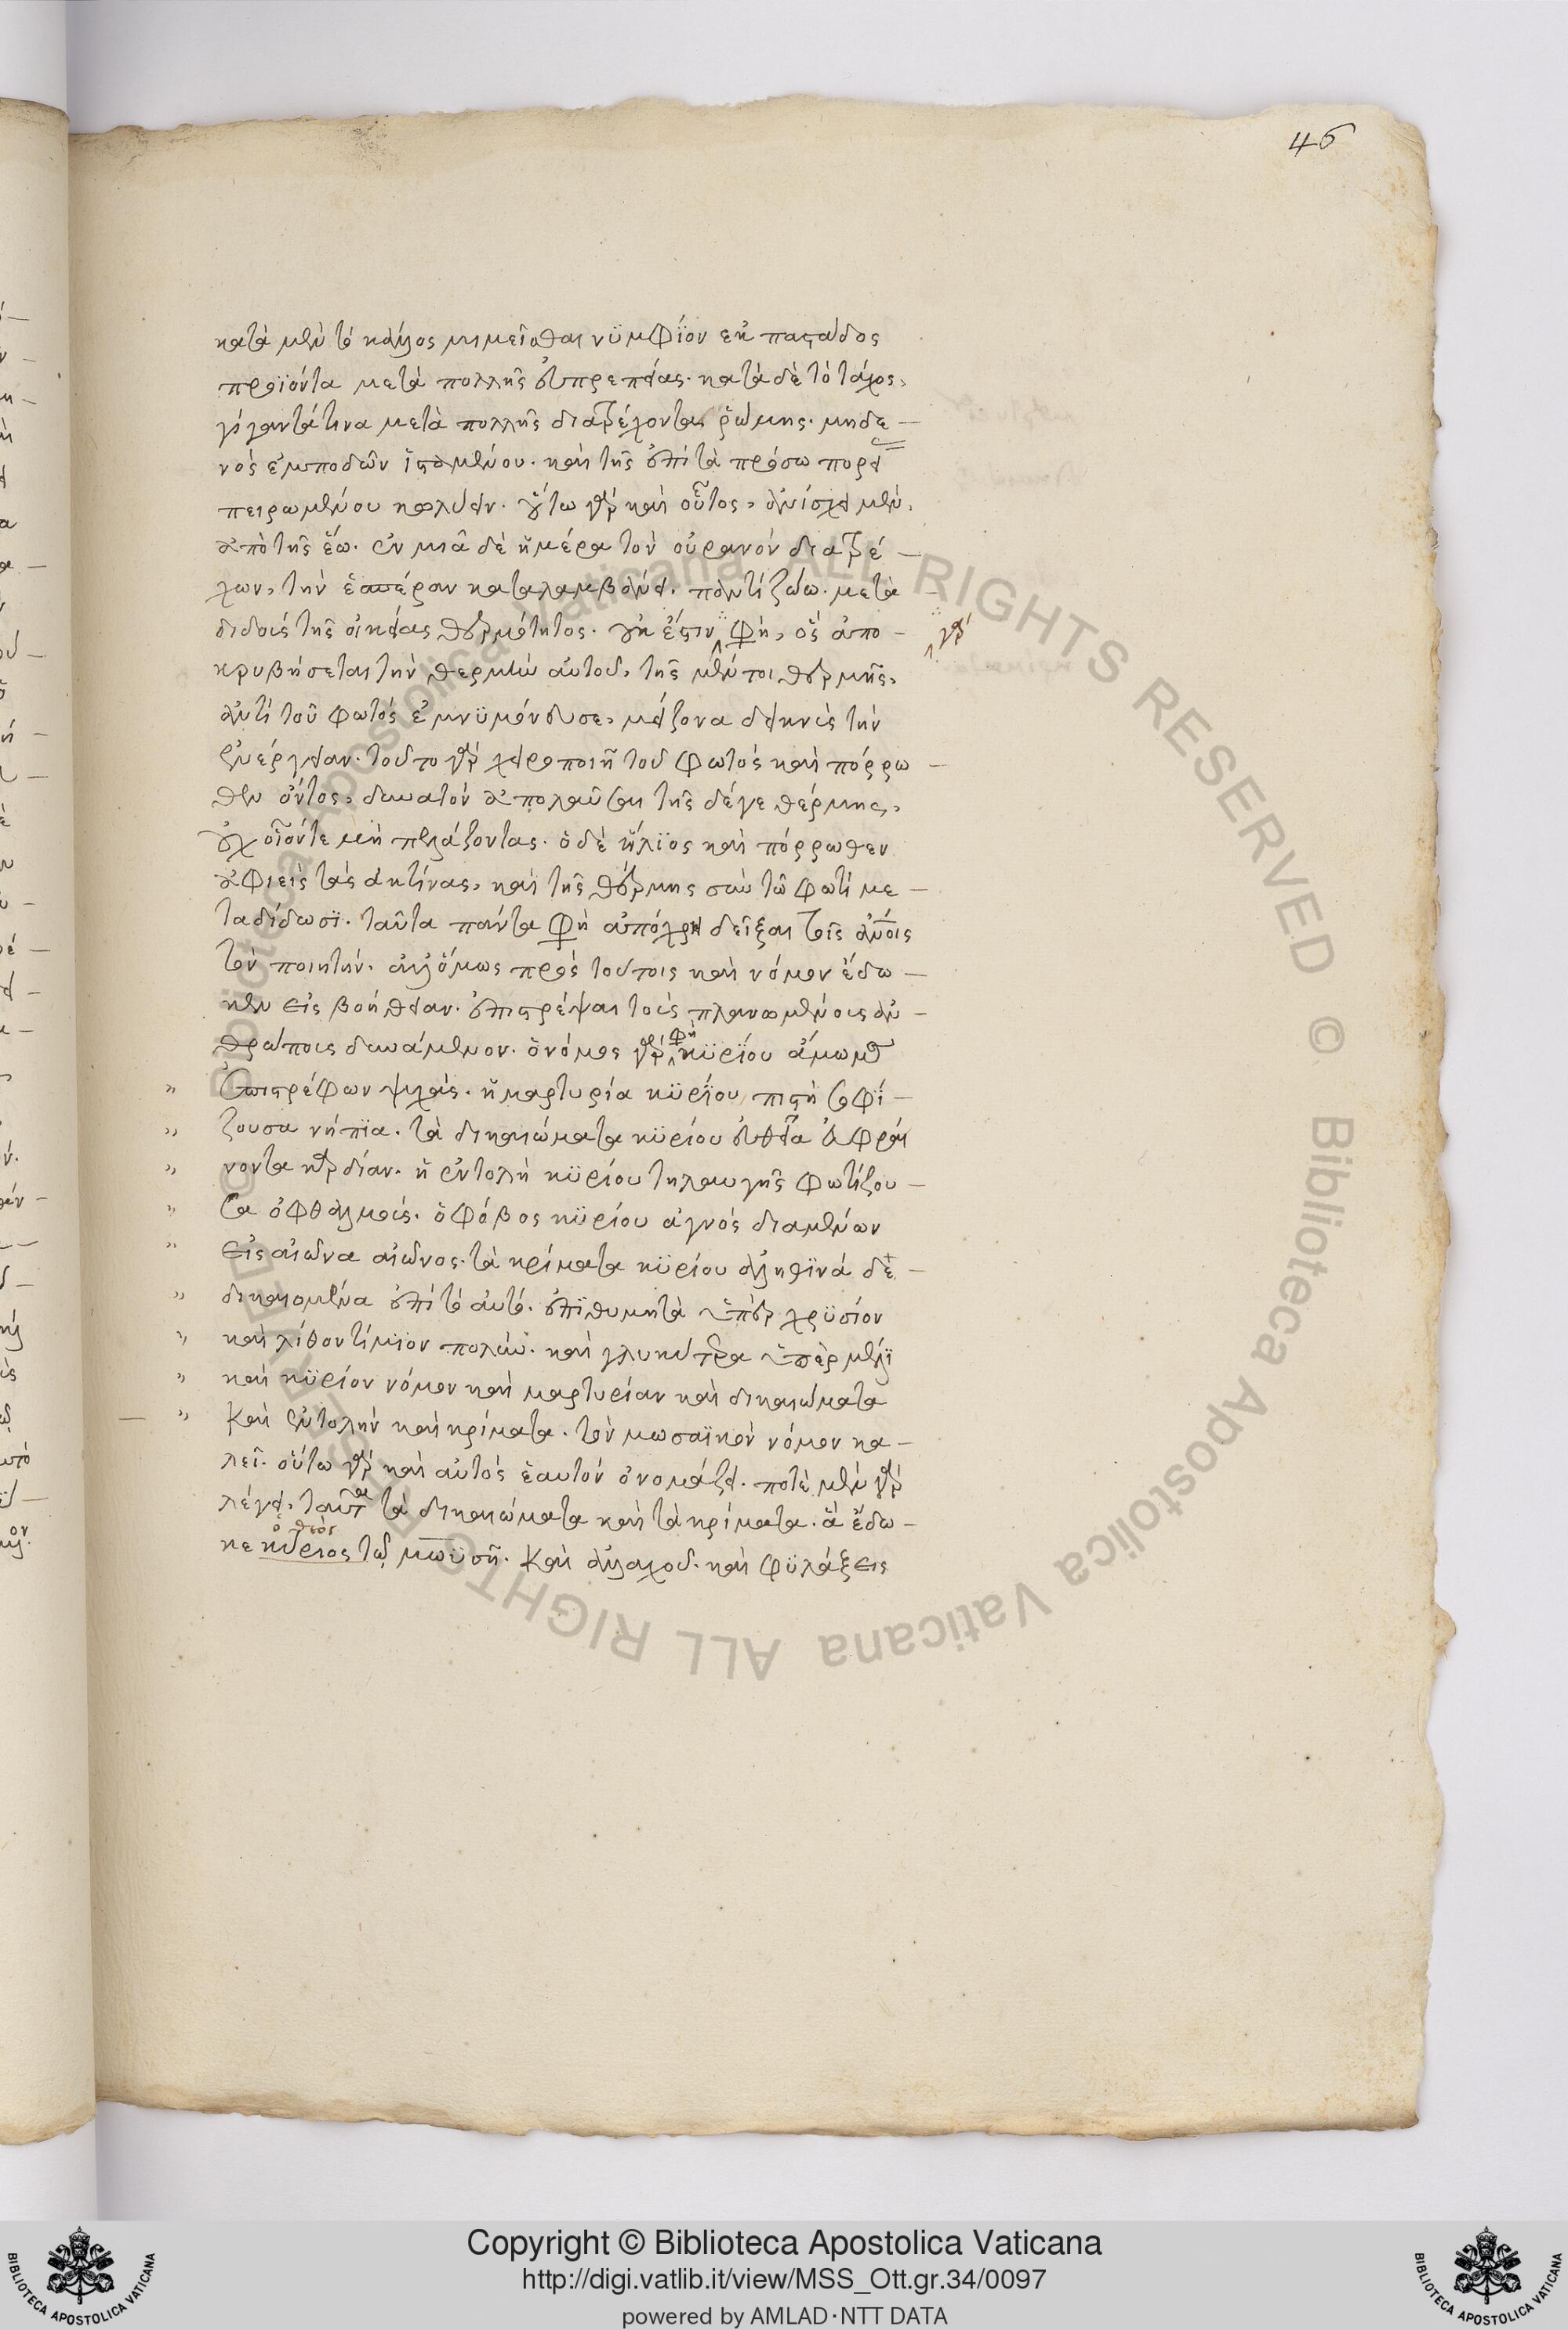 46
κατὰ μὲν τὸ κάλλος μιμεῖσθαι νϋμφίον ἐκ παστάδος
προϊόντα μετὰ πολλῆς εὐπρεπείας. κατὰ δὲ τὸ τάχος,
γίγαντά τινα μετὰ πολλῆς διατρέχοντα ῥώμης. μηδε —
νὸς ἐμποδὼν ἱσταμένου. καὶ τῆς ἐπὶ τὰ πρόσω πορεί
πειρωμένου κωλύειν. οὕτω γὰρ καὶ οὗτος, ἀνίσχει μὲν,
ἀπὸ τῆς ἕω. ἐν μιᾶ δὲ ἡμέρα τὸν οὐρανὸν διατρέ —
χων, τὴν ἑσπέραν καταλαμβάνει. παντὶ ζώω. μετα
διδοὺς τῆς οἰκείας θερμότητος. οὐκ ἔστιν φη, ὃς ἀπο —
γὰρ
κρυβήσεται τὴν θερμὴν αὐτοῦ, τῆς μέντοι θερμῆς,
ἀντὶ τοῦ φωτὸς ἐμνϋμόνευσε, μείζονα δεικνὺς τὴν
ἐνέργειαν. τοῦτο γὰρ χειροποιῆ τοῦ φωτὸς καὶ πόρρω —
θεν ὄντος, δυνατὸν ἀπολαῦσαι τῆς δέγε θέρμης,
οὐχ οἷόντε μὴ πελάζοντας. ὁ δὲ ἥλϊος καὶ πόρρωθεν
ἀφιεὶς τὰς ἀκτίνας, καὶ τῆς θέρμης σὺν τῶ φωτὶ με —
ταδίδωσϊ. ταῦτα πάντα φη ἀπόχρη δεῖξαι τοῖς ἀνοις
τὸν ποιητήν. ἀλλ' ὅμως πρὸς τούτοις καὶ νόμον ἔδω —
κεν εἰς βοήθειαν. ἐπιστρέψαι τοὺς πλανωμένοις ἀν —
θρώποις δυνάμενον. ὁ νόμος γὰρ φη κϋρΐου ἄμωμος
" ἐπιστρέφων ψυχάς. ἡ μαρτυρία κϋρΐου πιστὴ σοφΐ —
" ζουσα νήπϊα. τὰ δικαιώματα κϋρίου εὐθεῖα εὐφραί
" νοντα καρδίαν. ἡ ἐντολὴ κϋρίου τηλαυγὴς φωτίζου —
" σα ὀφθαλμούς. ὁ φόβος κϋρίου ἁγνὸς διαμένων
" εἰς αἰῶνα αἰῶνος. τὰ κρίματα κϋρίου ἀληθϊνά δε —
" δικαιομένα ἐπὶ τὸ αὐτό. ἐπϊθυμητὰ ὑπὲρ χρϋσίον
" καὶ λίθον τίμϊον πολύν. καὶ γλυκύτερα ὑπὲρ μέλϊ
" καὶ κϋρίον νόμον καὶ μαρτυρίαν καὶ δικαιώματα
— " καὶ ἐντολὴν καὶ κρίματα. τὸν μωσαϊκὸν νόμον κα —
λεῖ. οὕτω γὰρ καὶ αὐτὸς ἑαυτὸν ὀνομάζει. ποτὲ μὲν γὰρ
λέγει, ταῦτα τὰ δικαιώματα καὶ τὰ κρίματα. ἃ ἔδω —
ὁ θεὸς
κε κύριος τῷ μωϋσῆ. καὶ ἀλλαχοῦ. καὶ φϋλάξεις
Copyright © Biblioteca Apostolica Vaticana
http://digi.vatlib.it/view/MSS_Ott.gr.34/0097
powered by AMLAD·NTT DATA
BIBLIOTECA APOSTOLICA VATICANA
BIBLIOTECA APOSTOLICA VATICANA
© Biblioteca Apostolica Vaticana ALL RIGHTS RESERVED © Biblioteca Apostolica Vaticana ALL RIGHTS RESERVED